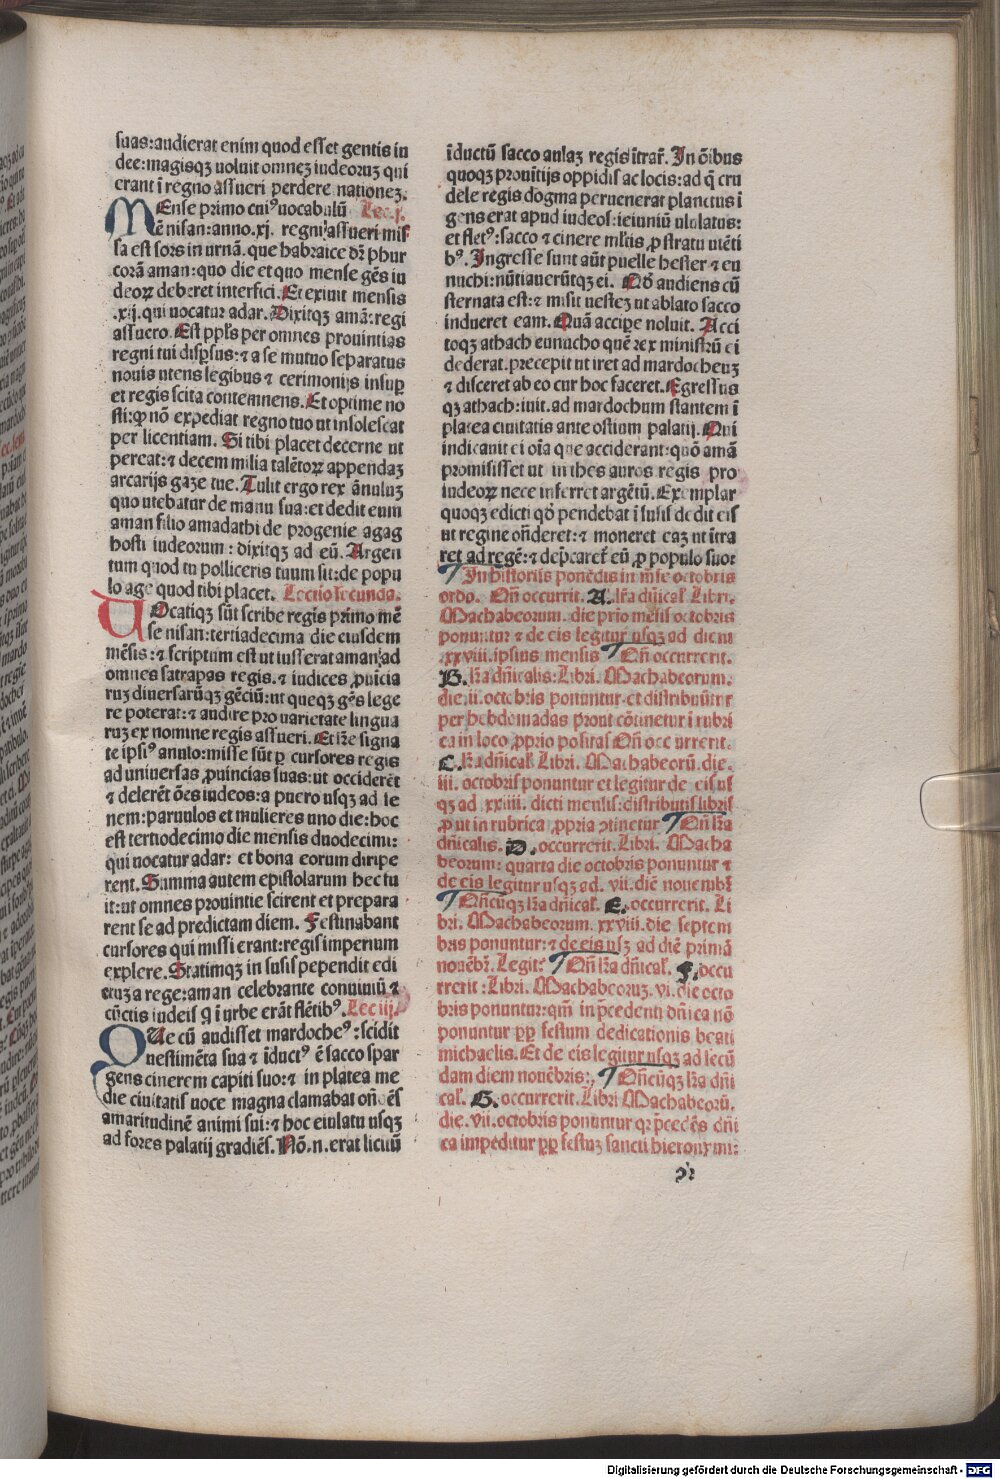 suas:audierat enim quod esset gentis iu
dee:magisqꝫ uoluit omneꝫ iudeoruꝫ qui
erant ī regno assueri perdere nationeꝫ.
MEnse primo cuiꝰ uocabulū Lec.j.
ē nisan:anno.xj. regni assueri mis
sa est sors in urnā. que habraice dr̄ phur
corā aman:quo die et quo mense gēs iu
deoꝝ deberet interfici. Et exiuit mensis
.xij. qui uocatur adar. Dixitqꝫ amā:regi
assuero. Est ppl̄s per omnes prouintias
regni tui disꝑsus:⁊ a se mutuo separatus
nouis utens legibus ⁊ cerimonijs insuꝑ
et regis scita contemnens. Et optime no
sti:ꝙ nō expediat regno tuo ut insolescat
per licentiam. Si tibi placet decerne ut
pereat:⁊ decem milia talētoꝝ appendaꝫ
arcarijs gaze tue. Tulit ergo rex ānuluꝫ
quo utebatur de manu sua:et dedit eum
aman filio amadathi de progenie agag
hosti iudeorum: dixitqꝫ ad eū. Argen
tum quod tu polliceris tuum sit:de popu
lo age quod tibi placet. Lectio secunda.
VOcatiqꝫ sūt scribe regis primo mē
se nisan:tertiadecima die eiusdem
mēsis:⁊ scriptum est ut iusserat aman:ad
omnes satrapas regis.⁊ iudices ꝓuīcia
ruꝫ diuersarūqꝫ gēciū:ut queqꝫ gēs lege
re poterat:⁊ audire pro uarietate lingua
ruꝫ ex nomine regis assueri. Et lr̄e signa
te ipsiꝰ anulo:misse sūt ꝑ cursores regis
ad uniuersas ꝓuincias suas:ut occiderēt
⁊ delerēt ōes iudeos:a puero usqꝫ ad se
nem:paruulos et mulieres uno die:hoc
est tertiodecimo die mensis duodecimi:
qui uocatur adar: et bona eorum diripe
rent. Summa autem epistolarum hec fu
it:ut omnes prouintie scirent et prepara
rent se ad predictam diem. Festinabant
cursores qui missi erant:regis imperium
explere. Statimqꝫ in susis pependit edi
ctuꝫ a rege:aman celebrante conuiuiū ⁊
cūctis iudeis q̄ ī urbe erāt flētibꝰ. Lec iij.
QUe cū audisset mardocheꝰ:scidit
uestimēta sua ⁊ īductꝰ ē sacco spar
gens cinerem capiti suo:⁊ in platea me
die ciuitatis uoce magna clamabat oñdēs
amaritudinē animi sui:⁊ hoc eiulatu usqꝫ
ad fores palatij gradiēs. Nō.n.erat licitū
īductū sacco aulaꝫ regis ītrar̄. In ōibus
quoqꝫ prouītijs oppidis ac locis:ad q̄ cru
dele regis dogma peruenerat planctus ī
gens erat apud iudeos:ieiuniū ululatus:
et fletꝰ:sacco ⁊ cinere mltīs ꝓ stratu utēti
bꝰ. Ingresse sunt aūt puelle hester ⁊ eu
nuchi:nūtiauerūtqꝫ ei. Qđ audiens cū
sternata est:⁊ misit uesteꝫ ut ablato sacco
indueret eam. Quā accipe noluit. Acci
toqꝫ athach eunucho quē rex ministrū ei
dederat.precepit ut iret ad mardocheuꝫ
⁊ disceret ab eo cur hoc faceret. Egressus
qꝫ athach:iuit.ad mardochum stantem ī
platea ciuitatis ante ostium palatij. Qui
indicauit ei oīa que acciderant:quō amā
promisisset ut in thes auros regis pro
iudeoꝝ nece inferret argētū. Exemplar
quoqꝫ edicti qđ pendebat ī susis dedit eis
ut regine oñderet:⁊ moneret eaꝫ ut ītra
ret ad regē:⁊ dep̄caret̄ eū ꝓ populo suo:
In historiis ponēdis in mēse octobris
ordo. Oñ occurrit. A. lr̄a dn̄ical̄ Libri.
Machabeorum. die prīo mēsis octobris
ponuntur ⁊ de eis legitur usqꝫ ad diem
.xxviii. ipsius mensis Oñ occurrerit.
B. lr̄a dn̄icalis: Libri. Machabeorum.
die.ii. octobris ponuntur et distribuūtur
per hebdomadas prout cōtinetur ī rubri
ca in loco ꝓprio positas Oñ occurrerit.
C. lr̄a dn̄ical̄. Libri. Machabeorū. die.
iii. octobris ponuntur et legitur de eis us
qꝫ ad .xxiiii. dicti mensis:distributis libris
ꝓut in rubrica ꝓpria ↄtinetur Oñ lr̄a
dn̄icalis. D. occurrerit. Libri. Macha
beorum: quarta die octobris ponuntur ⁊
de eis legitur usqꝫ ad. vii. diē nouembr̄
Oñcūqꝫ lr̄a dn̄ical̄. E. occurrerit. Li
bri. Machabeorum. xxviii. die septem
bris ponuntur:⁊ de eis usqꝫ ad diē primā
nouēbr̄. Legit̄: Oñ lr̄a dn̄ical̄. F. occu
rrerit: Libri. Machabeoruꝫ. vi. die octo
bris ponuntur:qm̄ in p̄cedenti dn̄ica nō
ponuntur ꝓpꝑ festum dedicationis beati
michaelis. Et de eis legitur usqꝫ ad secū
dam diem nouēbris:, Oñcūqꝫ lr̄a dn̄i
cal̄. G. occurrerit. Libri Machabeorū.
die. vii. octobris ponuntur qꝛ p̄cedēs dn̄i
ca impeditur ꝓpꝑ festuꝫ sancti hieronymi:
Digitalisierung gefördert durch die Deutsche Forschungsgemeinschaft - DFG